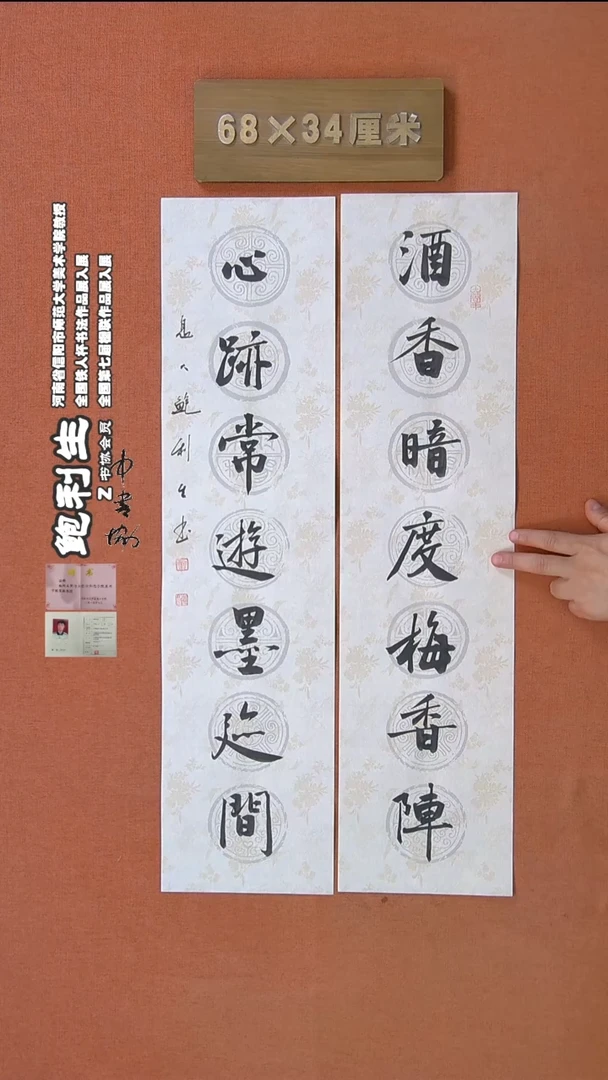 68×34厘米
酒香暗度梅香陣
心跡常遊墨迹間
鮑利生书
河南省信阳市师范大学美术学院教授
全国铁人杯书法作品展入展
全国第七届楹联作品展入展
鲍利生
书协会员